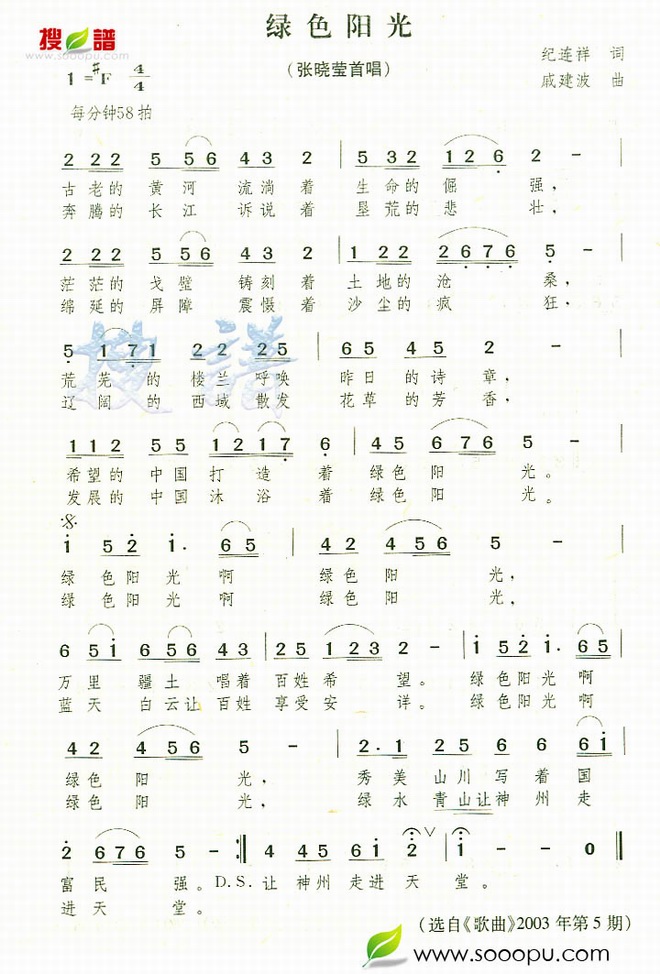 绿色阳光
搜谱
www.sooopu.com
（张晓莹首唱）
纪连祥 词
戚建波 曲
1=#F 4/4
每分钟58拍
2 2 2 2 5 5 5 6 4 3 2 | 5 3 2 1 2 6 2 - |
古老的 黄河 流淌着 生命的 倔 强，
奔腾的 长江 诉说着 垦荒的 悲 壮，
2 2 2 2 5 5 5 6 4 3 2 | 1 2 2 2 6 7 6 5 - |
茫茫的 戈壁 铸刻着 土地的 沧 桑，
绵延的 屏障 震慑着 沙尘的 疯 狂，
5 1 7 1 2 2 2 5 | 6 5 4 5 2 - |
荒芜 的 楼兰呼唤 昨日的诗 章，
辽阔 的 西域散发 花草的芳 香，
1 1 2 5 5 1 2 1 7 6 | 4 5 6 7 6 5 - |
希望的 中国 打 造 着 绿色 阳 光。
发展的 中国 沐 浴 着 绿色 阳 光。
i 5 2 i· 6 5 | 4 2 4 5 6 5 - |
绿 色 阳 光 啊 绿 色 阳 光，
绿 色 阳 光 啊 绿 色 阳 光，
6 5 i 6 5 6 4 3 | 2 5 1 2 3 2 - | i 5 2 i· 6 5
万 里 疆 土 唱着 百姓 希 望。 绿色阳光 啊
蓝 天 白云让 百姓 享受 安 详。 绿色阳光 啊
4 2 4 5 6 5 - | 2· 1 2 5 6 6 6 i |
绿色 阳 光， 秀美 山川 写 着 国
绿色 阳 光， 绿水 青山让神 州 走
2 6 7 6 5 - :‖ 4 4 5 6 i 2 ∨ | i - - 0 ‖
富 民 强。D.S.让 神州 走进 天 堂。
进 天 堂。
（选自《歌曲》2003年第5期）
www.sooopu.com